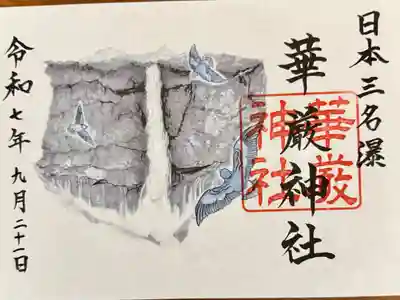 日本三名瀑
華厳神社
華厳
神社
令和七年 九月二十一日